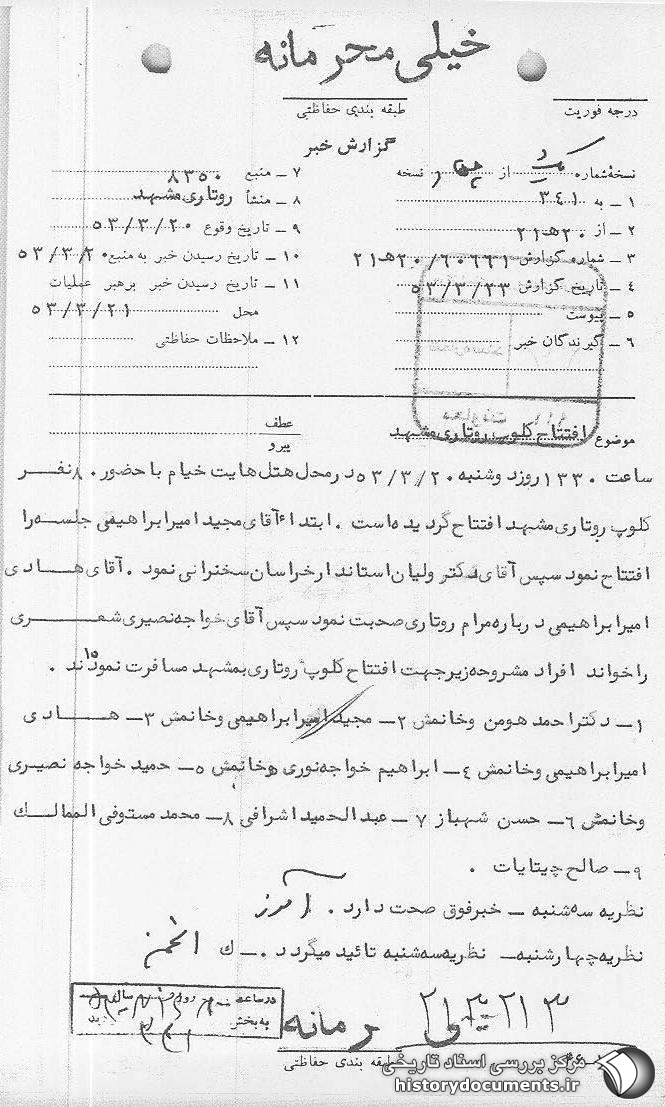 خیلی محرمانه
درجه فوریت
طبقه بندی حفاظتی
گزارش خبر
نسخه شماره از نسخه
۱ ـ به ۳۴۱
۲ ـ از ۲۰ هـ ۲۱
۳ ـ شماره گزارش ۲۰/۶۰۶۶۱ هـ ۲۱
۴ ـ تاریخ گزارش ۵۳/۳/۲۳
۵ ـ پیوست
۶ ـ گیرندگان خبر
۷ ـ منبع ۸۳۵۰
۸ ـ منشأ روتاری مشهد
۹ ـ تاریخ وقوع ۵۳/۳/۲۰
۱۰ ـ تاریخ رسیدن خبر به منبع ۵۳/۳/۲۰
۱۱ ـ تاریخ رسیدن خبر برهبر عملیات
محل ۵۳/۳/۲۱
۱۲ ـ ملاحظات حفاظتی
موضوع افتتاح کلوپ روتاری مشهد
عطف
پیرو
ساعت ۱۳۳۰ روز دوشنبه ۵۳/۳/۲۰ در محل هتل هایت خیام با حضور ۸۰ نفر
کلوپ روتاری مشهد افتتاح گردیده است . ابتداء آقای مجید امیرابراهیمی جلسه را
افتتاح نمود سپس آقای دکتر ولیان استاندار خراسان سخنرانی نمود . آقای هادی
امیرابراهیمی درباره مرام روتاری صحبت نمود سپس آقای خواجه نصیری شعری
را خواند افراد مشروحه زیر جهت افتتاح کلوپ روتاری بمشهد مسافرت نموده‌اند .
۱ـ دکتر احمد هومن وخانمش ۲ـ مجید امیرابراهیمی وخانمش ۳ـ هادی
امیرابراهیمی وخانمش ۴ـ ابراهیم خواجه نوری وخانمش ۵ـ حمید خواجه نصیری
وخانمش ۶ـ حسن شهباز ۷ـ عبدالحمید اشرافی ۸ـ محمد مستوفی الممالک
۹ـ صالح چیتایات .
نظریه سه شنبه ـ خبر فوق صحت دارد .
نظریه چهارشنبه ـ نظریه سه شنبه تائید میگردد .ـ ک
در ساعت روز
به بخش ۳۴۱
طبقه بندی حفاظتی
مرکز بررسی اسناد تاریخی
historydocuments.ir